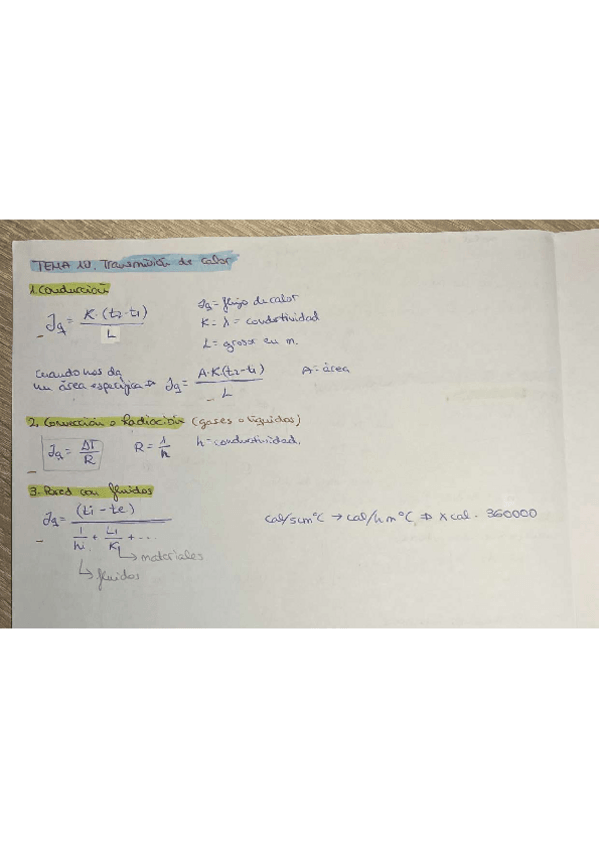 TEMA 10. Transmisión de calor
1. Conducción
Jq = K·(t2-t1) / L
Jq = flujo de calor
K = λ = conductividad
L = grosor en m.
cuando nos da
un área específica → Jq = A·K(t2-t1) / L
A = área
2. Convección o Radiación (gases o líquidos)
Jq = ΔT / R
R = 1 / h
h = conductividad.
3. Pared con fluidos
Jq = (ti - te) / 1/hi + L1/K1 + ...
→ materiales
→ fluidos
cal/scm°C → cal/hm°C ⇒ x cal · 360000